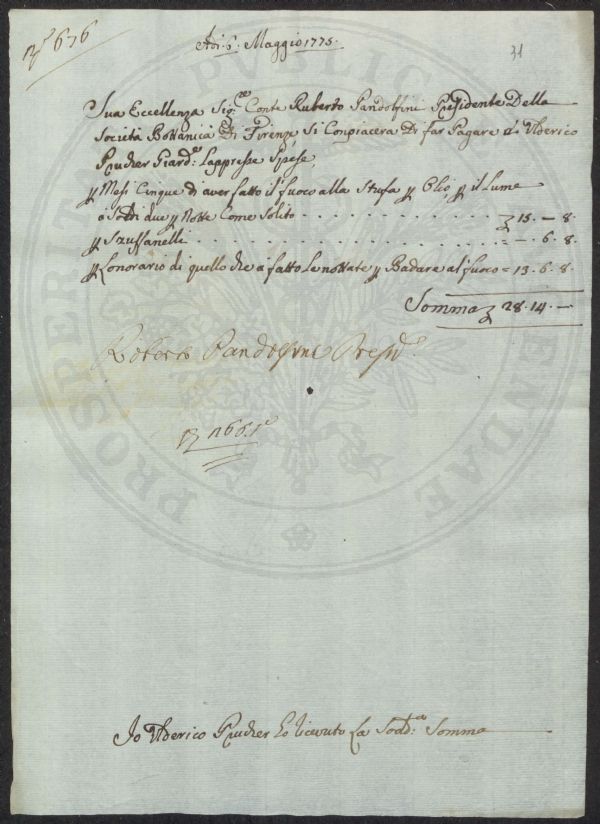 N.º 676
Adi. 6. Maggio 1775.
31
Sua Eccellenza Sig.re Conte Ruberto Pandolfini Presidente Della
Società Bottanica Di Firenze Si Conpiacera Di far Pagare à Ulderico
Prucher Giard: Lappresse Spese
p Mesi Cinque di aver fatto il fuoco alla Stufa p Olio, p il Lume
a Soldi due p Notte Come Solito 15 — 8
p Szuffanelli — 6. 8.
p Lonorario di quello che a fatto Le nottate p Badare al fuoco = 13. 6. 8.
Somma 28. 14. —
Roberto Pandolfini Presid.e
Io Ulderico Prucher ho ricevuto La Sodd.a Somma
PROSPERITATI PUBLICAE AUGENDAE